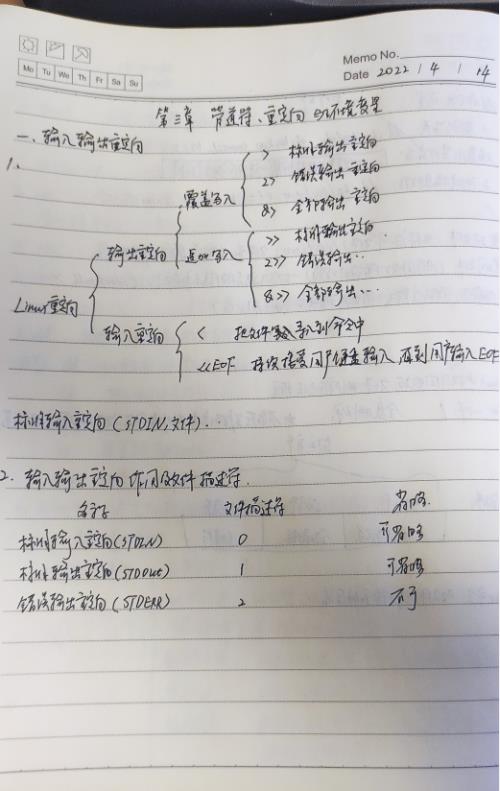 Memo No.
Mo Tu We Th Fr Sa Su
Date 2022 / 4 / 14
第三章 管道符、重定向与环境变量
一、输入输出重定向
1、
> 标准输出重定向
覆盖写入 2> 错误输出重定向
&> 全部输出重定向
输出重定向 追加写入 >> 标准输出重定向.
2>> 错误输出...
&>> 全部输出...
Linux重定向
输入重定向 < 把文件导入到命令中
<<EOF 持续接受用户键盘输入 直到用户输入EOF
标准输入重定向(STDIN,文件).
2、输入输出重定向作用及文件描述符.
名字 文件描述符 省略
标准输入重定向(STDIN) 0 可省略
标准输出重定向(STDOUT) 1 可省略
错误输出重定向(STDERR) 2 不可